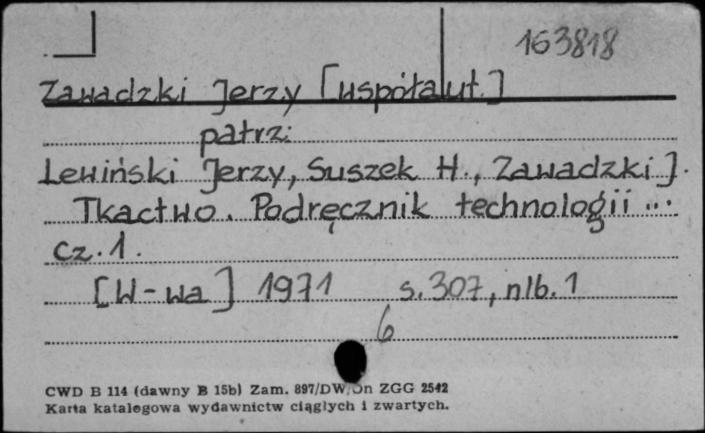 163818
Zawadzki Jerzy [współaut.]
patrz:
Lewiński Jerzy, Suszek H., Zawadzki J.
Tkactwo. Podręcznik technologii ...
cz. 1.
[W-wa] 1971 s. 307, nlb. 1
6
CWD B 114 (dawny B 15b) Zam. 897/DW/Dn ZGG 2542
Karta katalogowa wydawnictw ciągłych i zwartych.